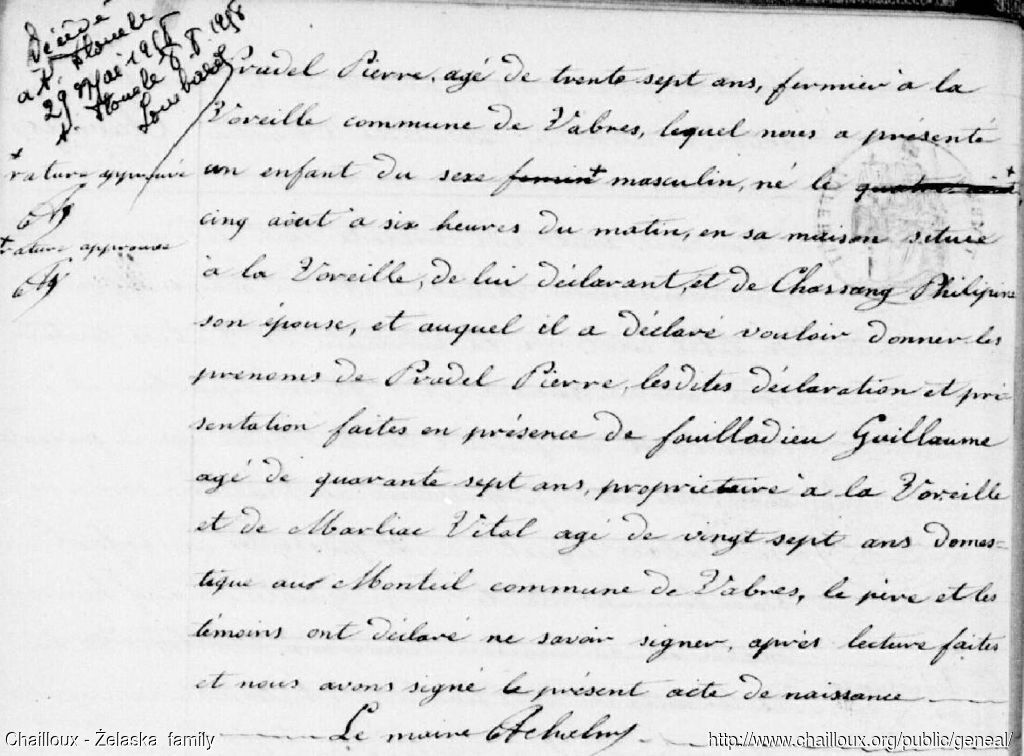 Décédé
à St Flour le
29 Mai 1958
St Flour le 8 8 1958
+
rature approuvée
+
rature approuvée
Pradel Pierre, agé de trente sept ans, fermier à la
Voreille commune de Vabres, lequel nous a présenté
un enfant du sexe feminin + masculin, né le quatre août +
cinq août à six heures du matin, en sa maison située
à la Voreille, de lui déclarant, et de Chassang Philipine
son épouse, et auquel il a déclaré vouloir donner les
prenoms de Pradel Pierre, lesdites déclaration et pré-
sentation faites en présence de fouilladieu Guillaume
agé de quarante sept ans, propriétaire à la Voreille
et de Marliac Vital agé de vingt sept ans domes-
tique au Monteil commune de Vabres, le père et les
témoins ont déclaré ne savoir signer, après lecture faites
et nous avons signé le présent acte de naissance
Le maire
Chailloux - Żelaska family
http://www.chailloux.org/public/geneal/